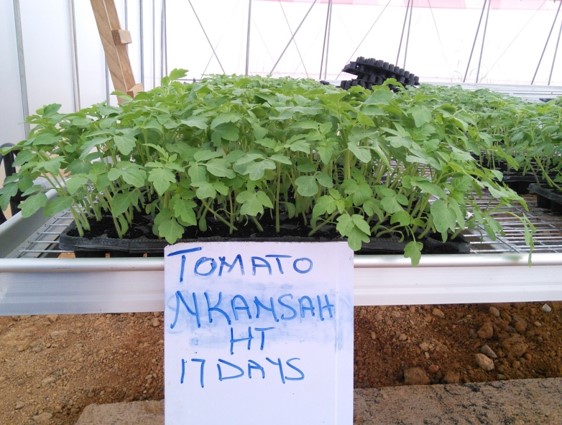 TOMATO
NKANSAH
HT
17 DAYS